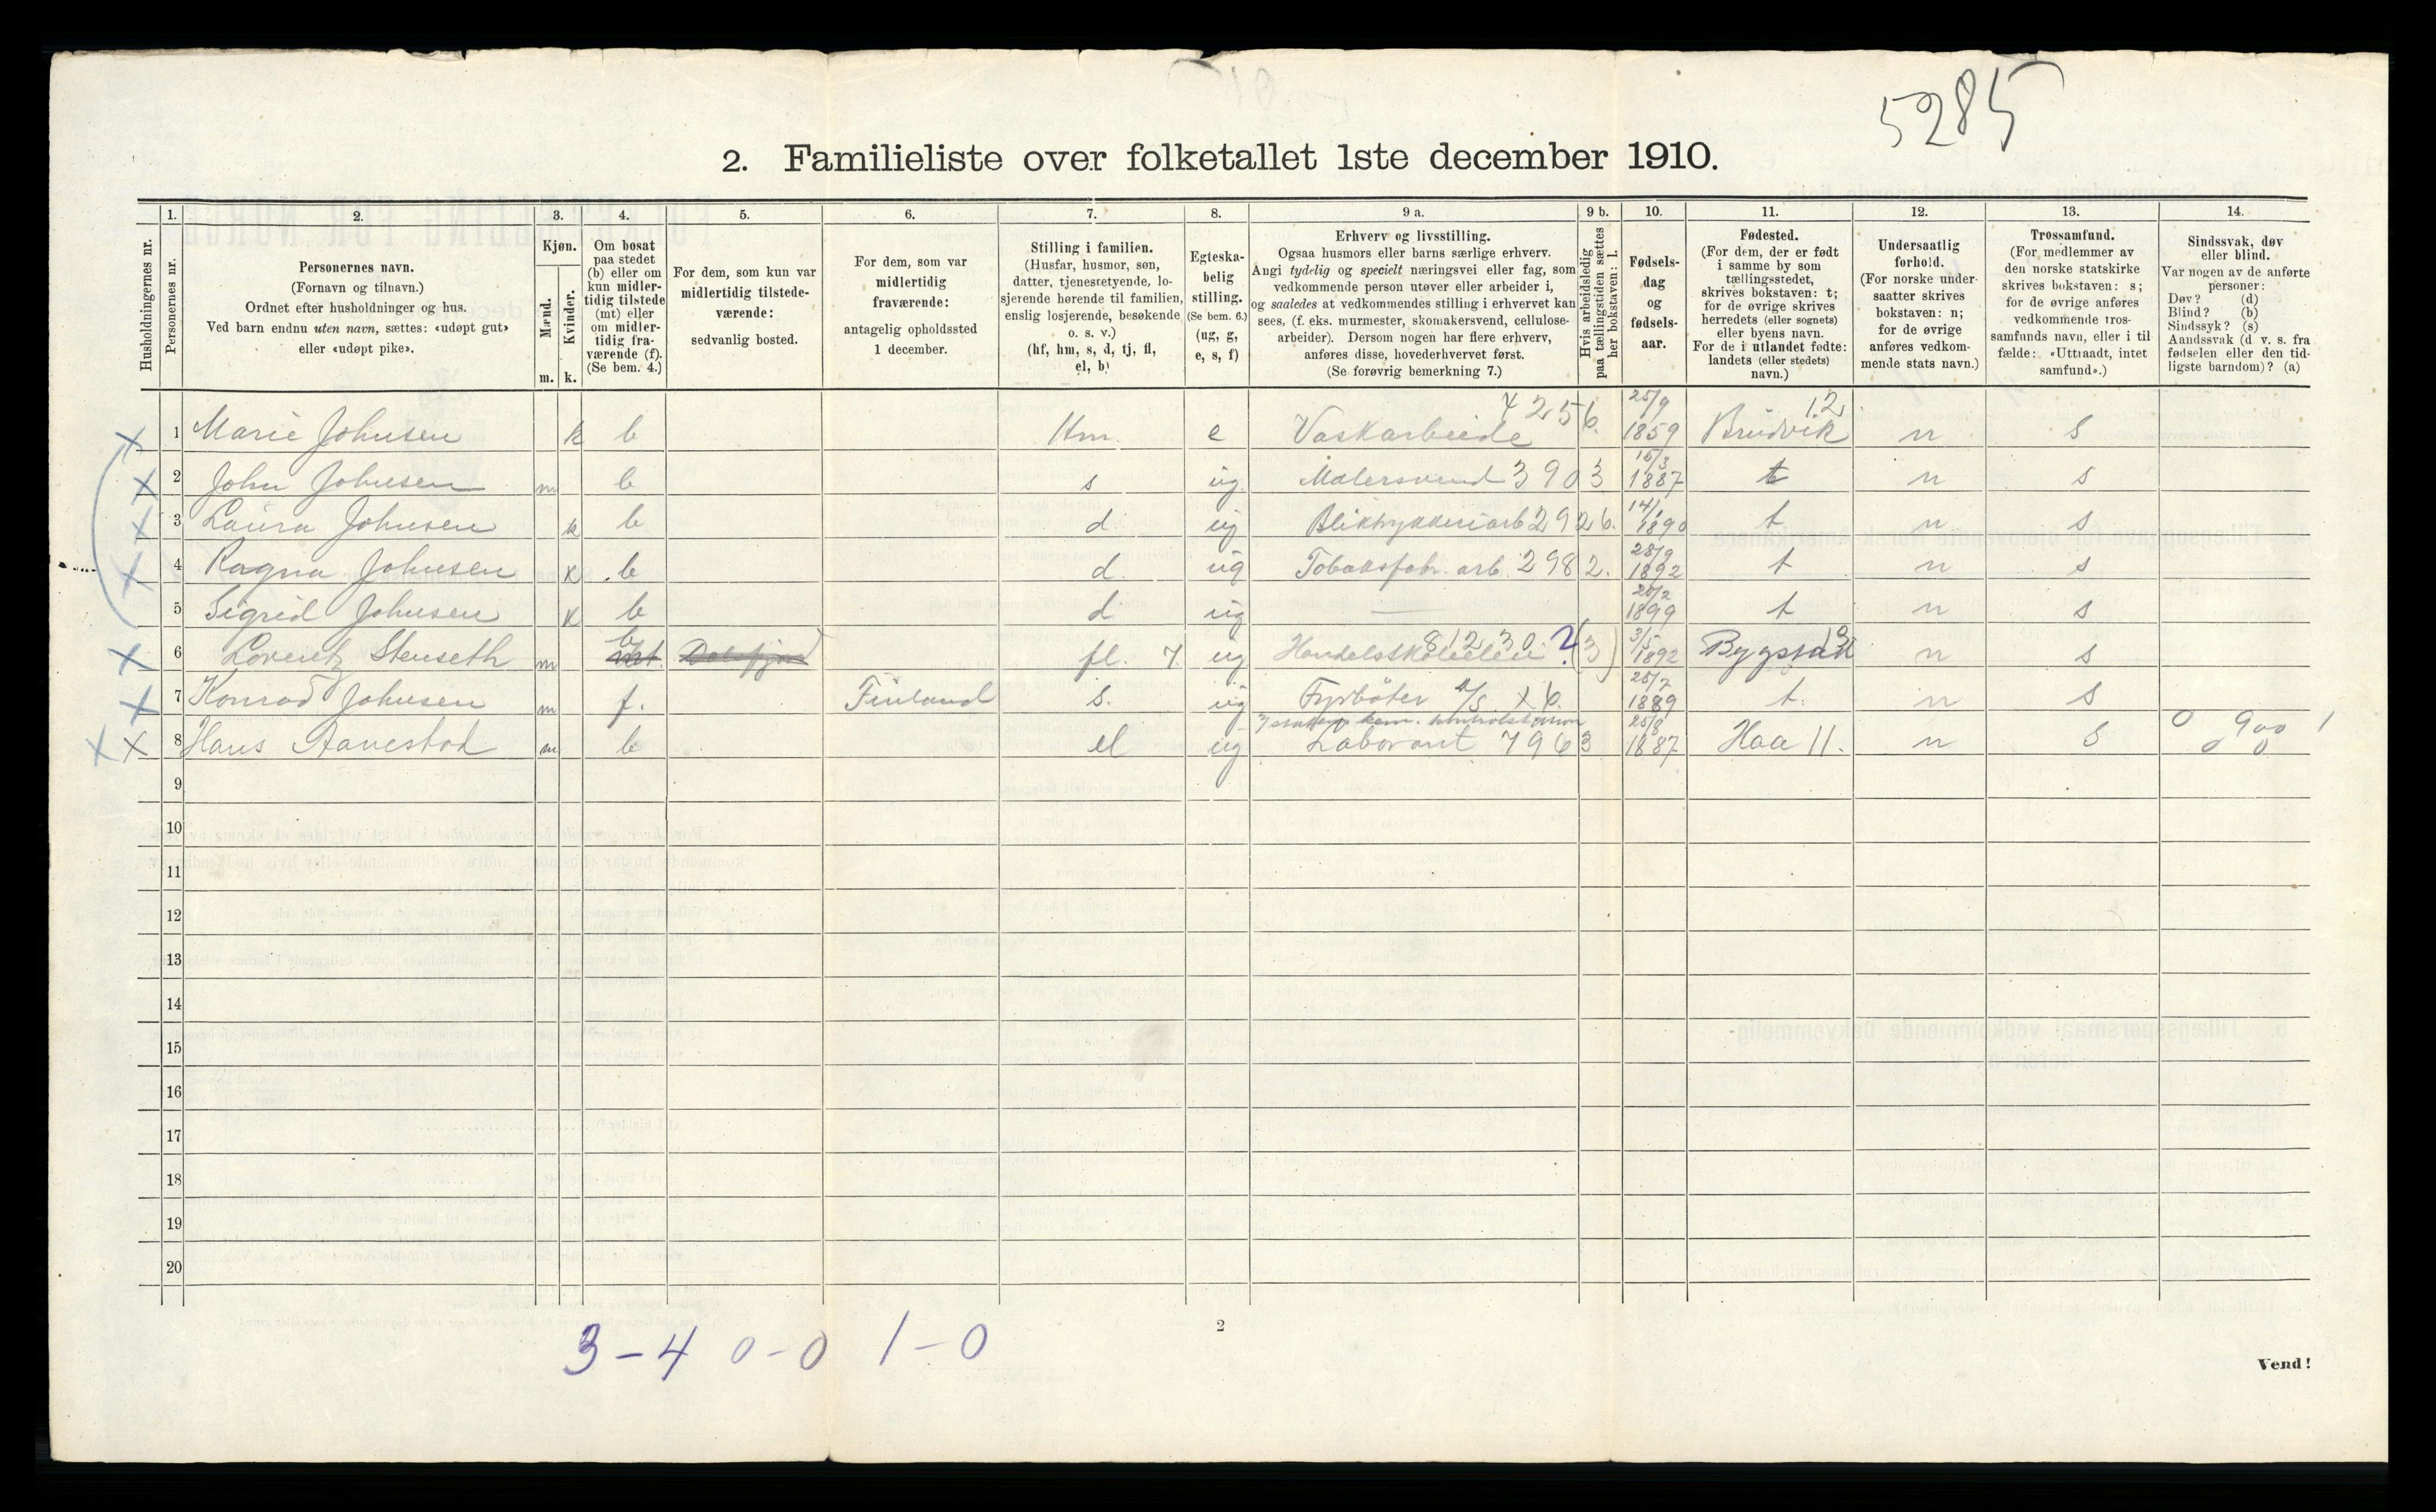 5285
2. Familieliste over folketallet 1ste december 1910.
Husholdningernes nr.
1. Personernes nr.
2. Personernes navn. (Fornavn og tilnavn.) Ordnet efter husholdninger og hus. Ved barn endnu uten navn, sættes: «udøpt gut» eller «udøpt pike».
3. Kjøn. Mænd. m. Kvinder. k.
4. Om bosat paa stedet (b) eller om kun midlertidig tilstede (mt) eller om midlertidig fraværende (f). (Se bem. 4.)
5. For dem, som kun var midlertidig tilstedeværende: sedvanlig bosted.
6. For dem, som var midlertidig fraværende: antagelig opholdssted 1 december.
7. Stilling i familien. (Husfar, husmor, søn, datter, tjenestetyende, losjerende hørende til familien, enslig losjerende, besøkende o. s. v.) (hf, hm, s, d, tj, fl, el, b)
8. Egteskabelig stilling. (Se bem. 6.) (ug, g, e, s, f)
9 a. Erhverv og livsstilling. Ogsaa husmors eller barns særlige erhverv. Angi tydelig og specielt næringsvei eller fag, som vedkommende person utøver eller arbeider i, og saaledes at vedkommendes stilling i erhvervet kan sees, (f. eks. murmester, skomakersvend, cellulosearbeider). Dersom nogen har flere erhverv, anføres disse, hovederhvervet først. (Se forøvrig bemerkning 7.)
9 b. Hvis arbeidsledig paa tællingstiden sættes her bokstaven: l.
10. Fødselsdag og fødselsaar.
11. Fødested. (For dem, der er født i samme by som tællingsstedet, skrives bokstaven: t; for de øvrige skrives herredets (eller sognets) eller byens navn. For de i utlandet fødte: landets (eller stedets) navn.)
12. Undersaatlig forhold. (For norske undersaatter skrives bokstaven: n; for de øvrige anføres vedkommende stats navn.)
13. Trossamfund. (For medlemmer av den norske statskirke skrives bokstaven: s; for de øvrige anføres vedkommende trossamfunds navn, eller i tilfælde: «Uttraadt, intet samfund».)
14. Sindssvak, døv eller blind. Var nogen av de anførte personer: Døv? (d) Blind? (b) Sindssyk? (s) Aandssvak (d. v. s. fra fødselen eller den tidligste barndom)? (a)
X 1 Marie Johnsen k b Hm. e Vaskarbeide 4256. 25/9 1859 Brudvik 12 n s
X 2 John Johnsen m b s ug Malersvend 3903 15/3 1887 t n s
X 3 Laura Johnsen k b d ug 2926. 14/1 1890 t n s
X 4 Ragna Johnsen k b d. ug Tobaksfabr. arb. 2982. 28/9 1892 t n s
5 Sigrid Johnsen k b d ug — 20/2 1899 t n s
X 6 Lorentz Stenseth m b fl. 7. ug 81230 ? (3) 3/5 1892 Bygstad 13 n s
X 7 Konrad Johnsen m f. Finland s. ug Fyrbøter D/S X6. 25/7 1889 t. n s
X X 8 Hans Aanestad m b el ug kem. Laborant 7963 25/8 1887 Haa 11. n s
9
10
11
12
13
14
15
16
17
18
19
20
3-4 0-0 1-0
2
Vend!